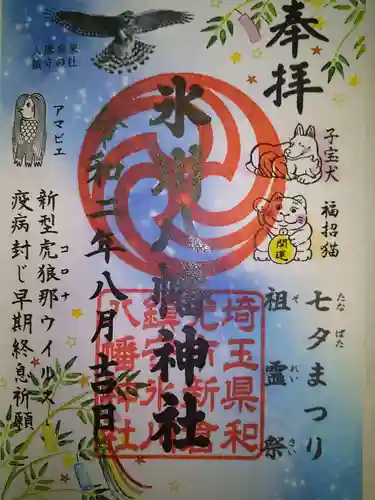 奉拝
子宝犬
福招猫
開運
七夕まつり
たなばた
祖霊祭
それいさい
氷川八幡神社
埼玉県和
光市新倉
鎮守氷川
八幡神社
令和二年八月吉日
アマビエ
新型虎狼那ウイルス
コロナ
疫病封じ早期終息祈願